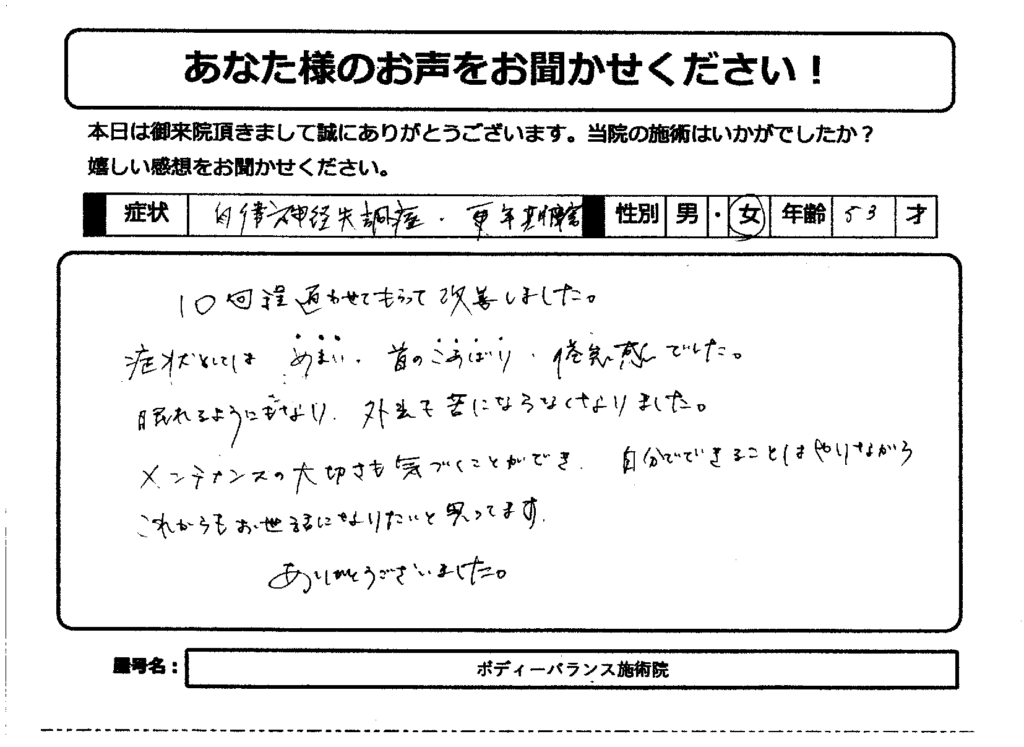 あなた様のお声をお聞かせください！
本日は御来院頂きまして誠にありがとうございます。当院の施術はいかがでしたか？
嬉しい感想をお聞かせください。
症状 自律神経失調症・更年期障害 性別 男・女 年齢 53 才
10回程通わせてもらって改善しました。
症状としては めまい、首のこわばり、倦怠感でした。
眠れるようにもなり、外出も苦にならなくなりました。
メンテナンスの大切さも気づくことができ、自分でできることはやりながら
これからもお世話になりたいと思ってます。
ありがとうございました。
屋号名： ボディーバランス施術院